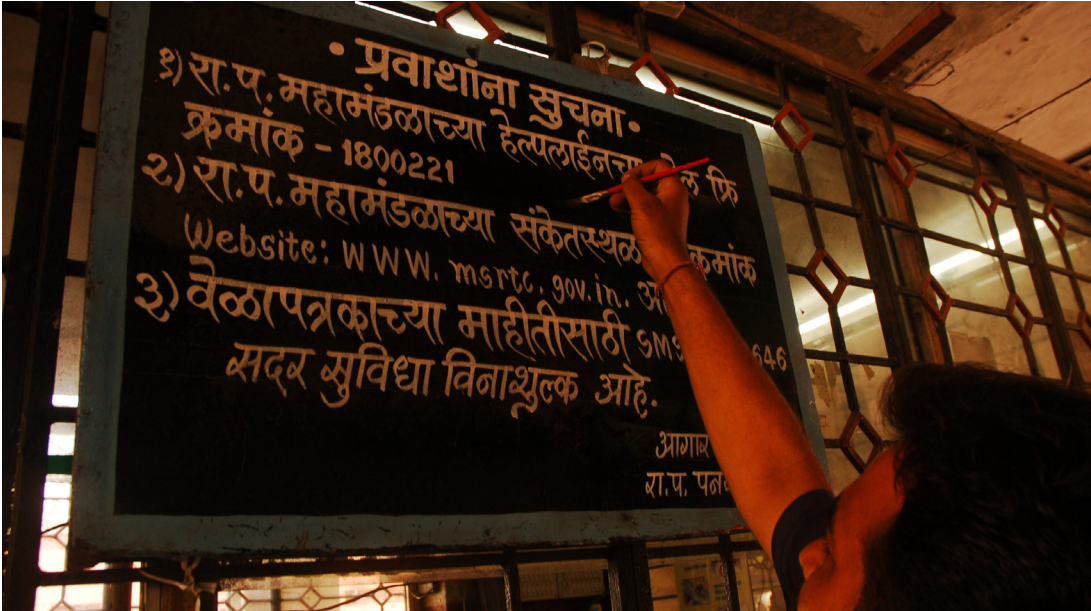 • प्रवाशांना सुचना •
१) रा.प. महामंडळाच्या हेल्पलाईनचा फ्रि
क्रमांक - 1800221
२) रा.प. महामंडळाच्या संकेतस्थळ क्रमांक
Website: WWW. msrtc. gov. in.
३) वेळापत्रकाच्या माहीतीसाठी SMS 646
सदर सुविधा विनाशुल्क आहे.
आगार
रा.प.